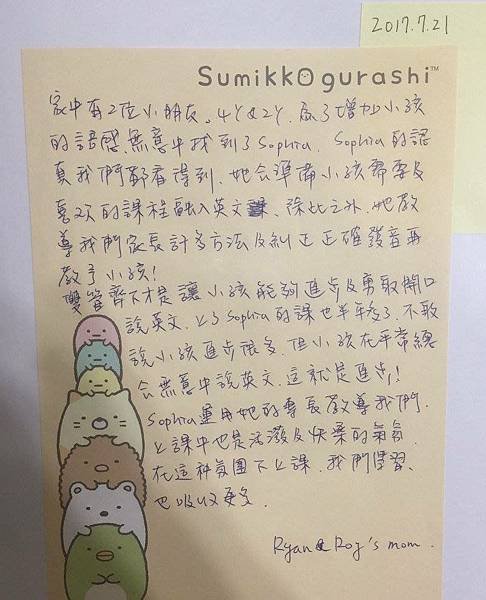 2017.7.21
Sumikkogurashi™
家中有2位小朋友。4Y&2Y.為了增加小孩
的語感無意中找到了Sophia. Sophia的認
真我們都看得到.她会準備小孩需要及
喜欢的課程融入英文課.除此之外.她教
導我們家長許多方法及糾正正確發音再
教予小孩!
雙管齊下才是讓小孩能夠進步及勇敢開口
說英文.上了Sophia的課也半年多了.不敢
說小孩進步很多.但小孩在平常總
会無意中說英文.這就是進步!
Sophia運用她的專長教導我們.
上課中也是活潑及快樂的氣氛.
在這种氛圍下上課.我們學習、
也吸收更多.
Ryan & Roy's mom.